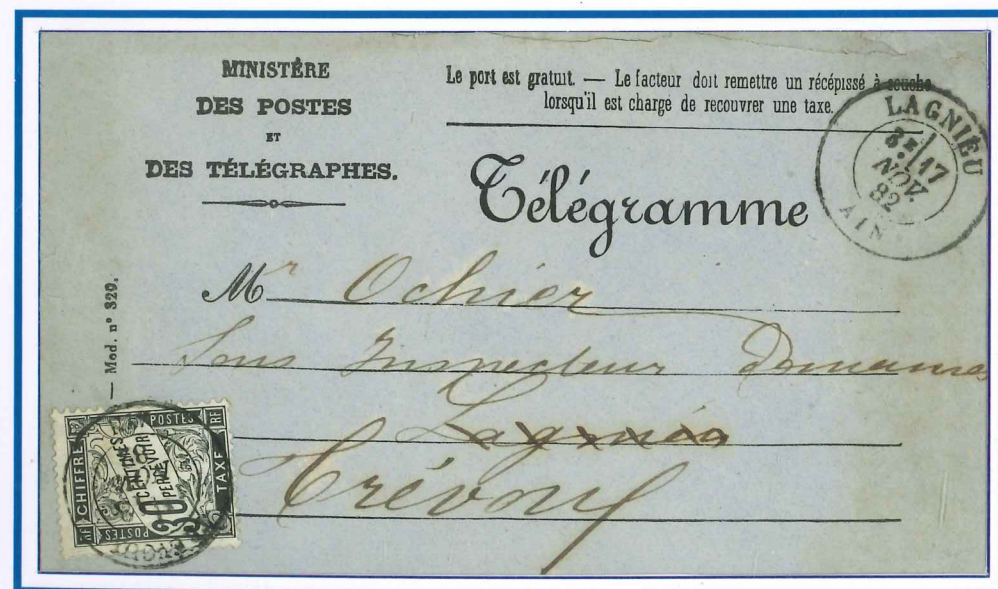 MINISTÈRE
DES POSTES
ET
DES TÉLÉGRAPHES.
Le port est gratuit. — Le facteur doit remettre un récépissé à souche
lorsqu'il est chargé de recouvrer une taxe.
LAGNIEU
3E 17
NOV.
82
AIN
Télégramme
Mr Ochier
Sous Inspecteur Domaines
Lagnieu
Trévoux
— Mod. n° 329.
RF CHIFFRE
POSTES RF
30
CENTIMES
A
PERCEVOIR
TAXE
POSTES